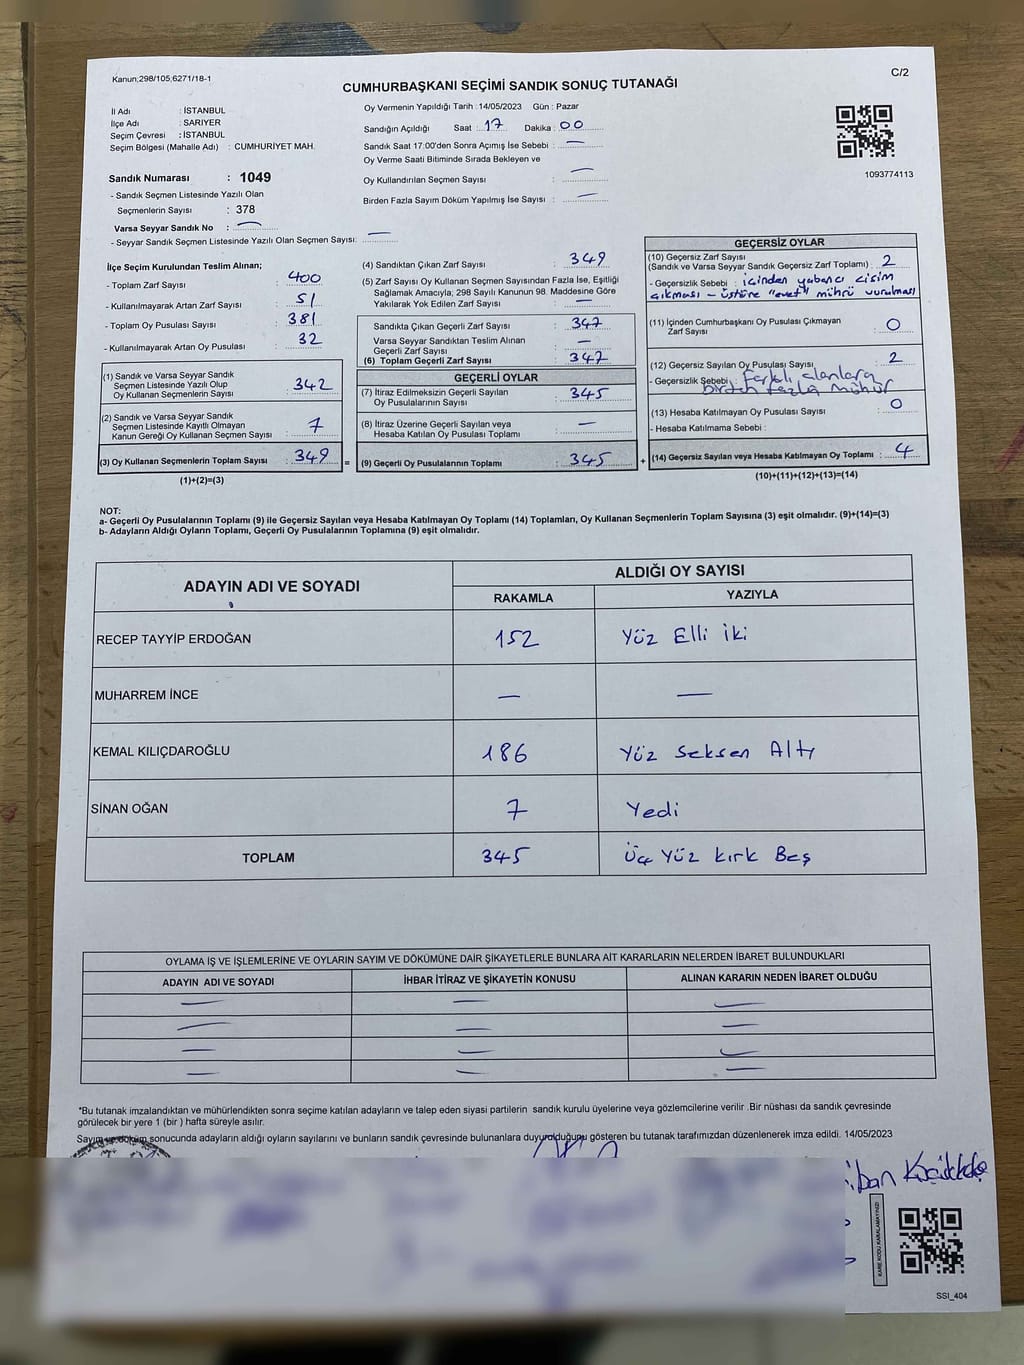 Kanun;298/105,6271/18-1
C/2
CUMHURBAŞKANI SEÇİMİ SANDIK SONUÇ TUTANAĞI
İl Adı : İSTANBUL
İlçe Adı : SARIYER
Seçim Çevresi : İSTANBUL
Seçim Bölgesi (Mahalle Adı) : CUMHURİYET MAH.
Sandık Numarası : 1049
- Sandık Seçmen Listesinde Yazılı Olan
Seçmenlerin Sayısı : 378
Varsa Seyyar Sandık No : —
- Seyyar Sandık Seçmen Listesinde Yazılı Olan Seçmen Sayısı: —
Oy Vermenin Yapıldığı Tarih : 14/05/2023 Gün : Pazar
Sandığın Açıldığı Saat : 17 Dakika : 00
Sandık Saat 17:00'den Sonra Açımış İse Sebebi : —
Oy Verme Saati Bitiminde Sırada Bekleyen ve
Oy Kullandırılan Seçmen Sayısı : —
Birden Fazla Sayım Döküm Yapılmış İse Sayısı : —
1093774113
İlçe Seçim Kurulundan Teslim Alınan;
- Toplam Zarf Sayısı : 400
- Kullanılmayarak Artan Zarf Sayısı : 51
- Toplam Oy Pusulası Sayısı : 381
- Kullanılmayarak Artan Oy Pusulası : 32
(1) Sandık ve Varsa Seyyar Sandık
Seçmen Listesinde Yazılı Olup
Oy Kullanan Seçmenlerin Sayısı : 342
(2) Sandık ve Varsa Seyyar Sandık
Seçmen Listesinde Kayıtlı Olmayan
Kanun Gereği Oy Kullanan Seçmen Sayısı : 7
(3) Oy Kullanan Seçmenlerin Toplam Sayısı : 349 =
(1)+(2)=(3)
(4) Sandıktan Çıkan Zarf Sayısı : 349
(5) Zarf Sayısı Oy Kullanan Seçmen Sayısından Fazla İse, Eşitliği
Sağlamak Amacıyla, 298 Sayılı Kanunun 98. Maddesine Göre
Yakılarak Yok Edilen Zarf Sayısı : —
Sandıkta Çıkan Geçerli Zarf Sayısı : 347
Varsa Seyyar Sandıktan Teslim Alınan
Geçerli Zarf Sayısı : —
(6) Toplam Geçerli Zarf Sayısı : 347
GEÇERLİ OYLAR
(7) İtiraz Edilmeksizin Geçerli Sayılan
Oy Pusulalarının Sayısı : 345
(8) İtiraz Üzerine Geçerli Sayılan veya
Hesaba Katılan Oy Pusulası Toplamı : —
(9) Geçerli Oy Pusulalarının Toplamı : 345 +
GEÇERSİZ OYLAR
(10) Geçersiz Zarf Sayısı
(Sandık ve Varsa Seyyar Sandık Geçersiz Zarf Toplamı) : 2
- Geçersizlik Sebebi : içinden yabancı cisim
çıkması – üstüne "evet" mührü vurulması
(11) İçinden Cumhurbaşkanı Oy Pusulası Çıkmayan
Zarf Sayısı : 0
(12) Geçersiz Sayılan Oy Pusulası Sayısı : 2
- Geçersizlik Şebebi : farklı alanlara
birden fazla mühür
(13) Hesaba Katılmayan Oy Pusulası Sayısı : 0
- Hesaba Katılmama Sebebi :
(14) Geçersiz Sayılan veya Hesaba Katılmayan Oy Toplamı : 4
(10)+(11)+(12)+(13)=(14)
NOT:
a- Geçerli Oy Pusulalarının Toplamı (9) ile Geçersiz Sayılan veya Hesaba Katılmayan Oy Toplamı (14) Toplamları, Oy Kullanan Seçmenlerin Toplam Sayısına (3) eşit olmalıdır. (9)+(14)=(3)
b- Adayların Aldığı Oyların Toplamı, Geçerli Oy Pusulalarının Toplamına (9) eşit olmalıdır.
ADAYIN ADI VE SOYADI
ALDIĞI OY SAYISI
RAKAMLA YAZIYLA
RECEP TAYYİP ERDOĞAN 152 Yüz Elli İki
MUHARREM İNCE — —
KEMAL KILIÇDAROĞLU 186 Yüz Seksen Altı
SİNAN OĞAN 7 Yedi
TOPLAM 345 Üç Yüz Kırk Beş
OYLAMA İŞ VE İŞLEMLERİNE VE OYLARIN SAYIM VE DÖKÜMÜNE DAİR ŞİKAYETLERLE BUNLARA AİT KARARLARIN NELERDEN İBARET BULUNDUKLARI
ADAYIN ADI VE SOYADI İHBAR İTİRAZ VE ŞİKAYETİN KONUSU ALINAN KARARIN NEDEN İBARET OLDUĞU
— — —
— — —
— — —
— — —
*Bu tutanak imzalandıktan ve mühürlendikten sonra seçime katılan adayların ve talep eden siyasi partilerin sandık kurulu üyelerine veya gözlemcilerine verilir .Bir nüshası da sandık çevresinde
görülecek bir yere 1 (bir ) hafta süreyle asılır.
Sayım ve döküm sonucunda adayların aldığı oyların sayılarını ve bunların sandık çevresinde bulunanlara duyurulduğunu gösteren bu tutanak tarafımızdan düzenlenerek imza edildi. 14/05/2023
KARE KODU KARALAMAYINIZ!
SSI_404